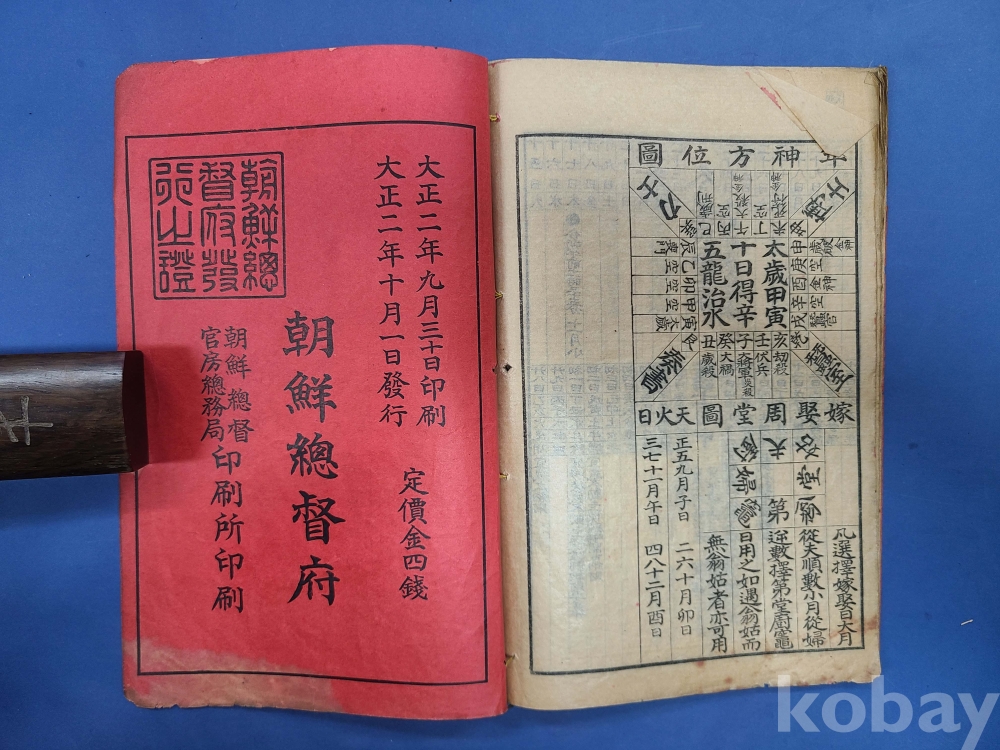 大正二年九月三十日印刷
大正二年十月一日發行
定價金四錢
朝鮮總督府
朝鮮總督
官房總務局
印刷所印刷
朝鮮總
督府發
行之證
年神方位圖
博士
力士
蠶室
奏書
未
丁空
丙空
巳歲刑
太歲甲寅
十日得辛
五龍治水
亥劫殺
壬伏兵
癸大禍
丑歲殺
嫁娶周堂圖
天火日
夫
第
堂
翁
正五九月子日
二六十月卯日
三七十一月午日
四八十二月酉日
凡選擇嫁娶日大月
從夫順數小月從婦
逆數擇第堂廚竈
日用之如遇翁姑而
無翁姑者亦可用
kobay